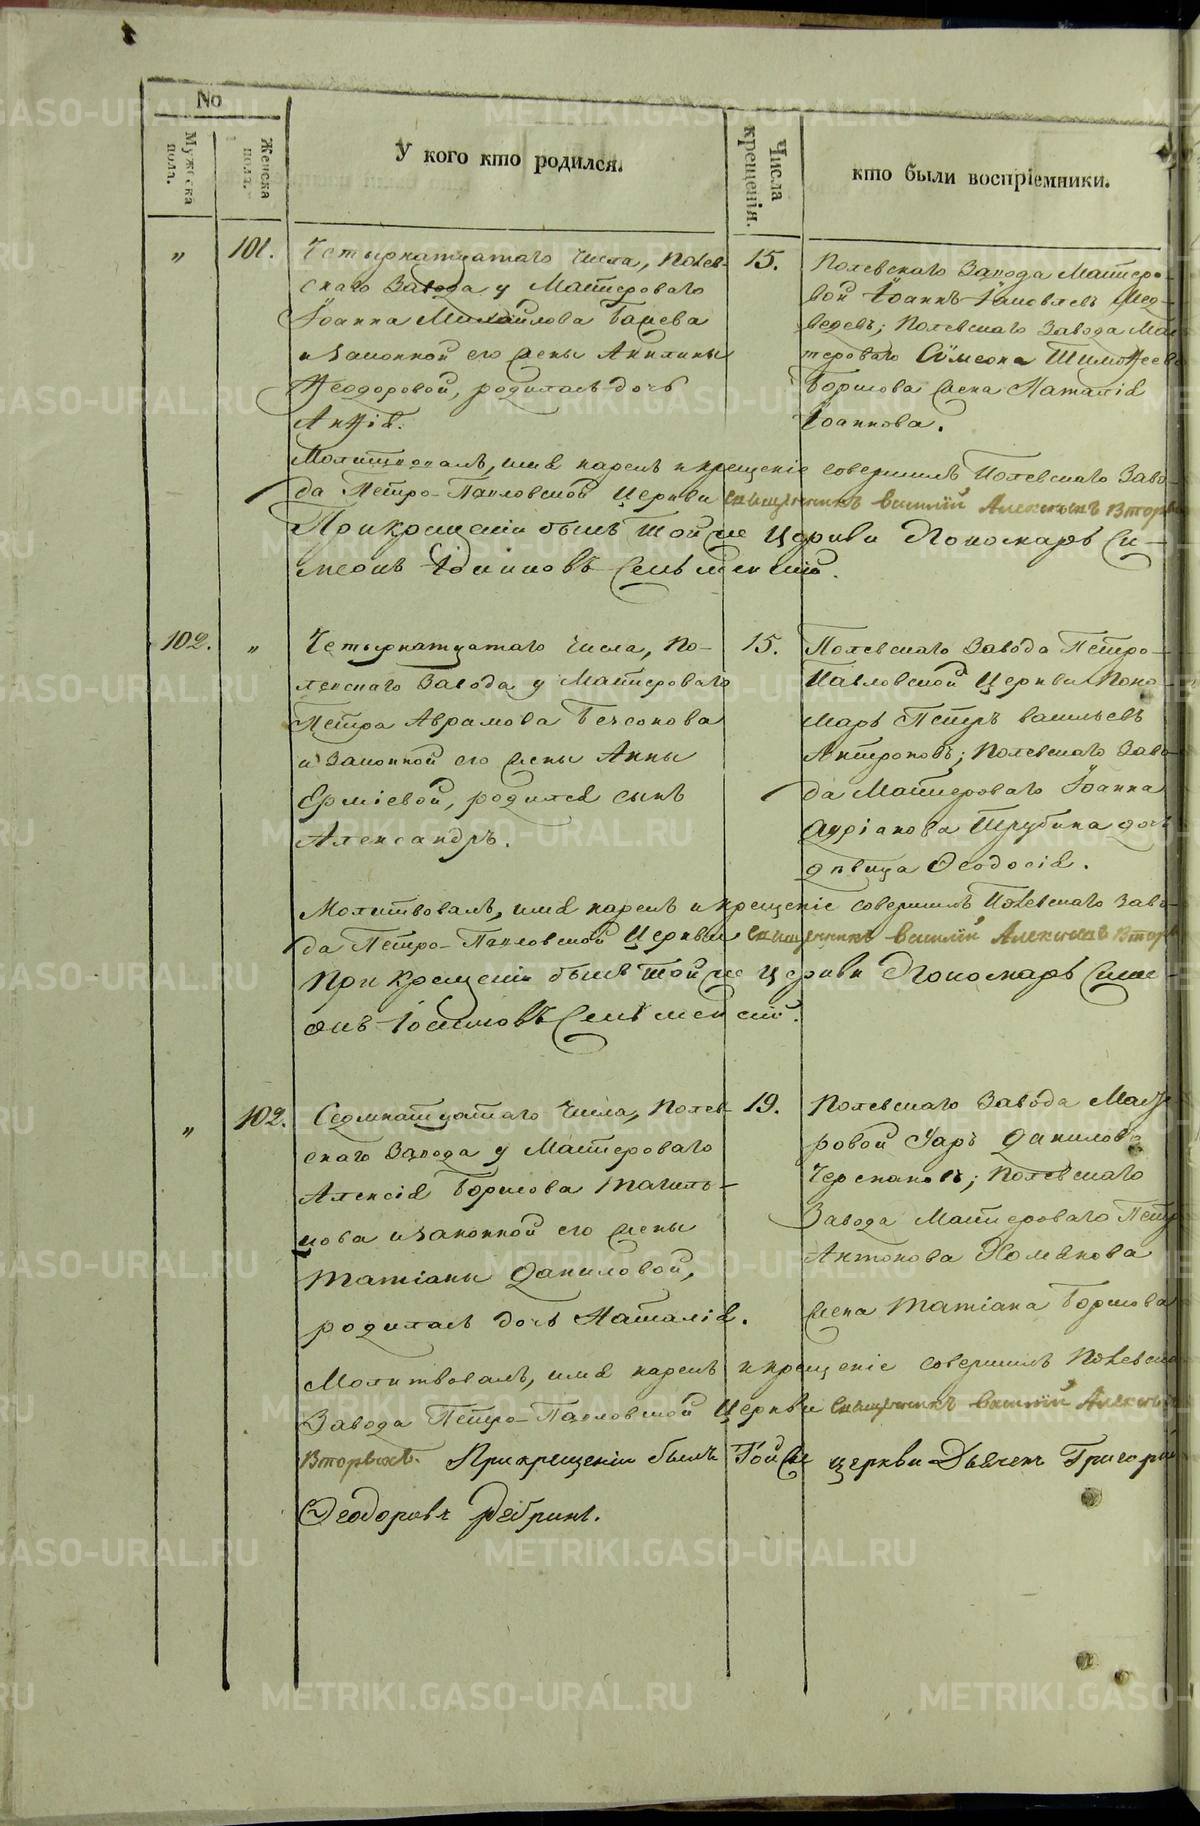 No
Мужеска пола.
Женска пола.
У кого кто родился.
Числа крещенія.
кто были воспріемники.
" 101. Четырнатцатаго числа, Полев-
скаго Завода у Мастероваго
Іоанна Михайлова
и законной его жены Акилины
Ѳеодоровой, родилась дочь
Анѳія.
15.
Полевскаго Завода Мастеро-
вой Іоаннъ Іаковлевъ Мед-
ведевъ; Полевскаго Завода Мас
тероваго Сѵмеона Тимоѳеева
Борисова жена Наталія
Іоаннова.
Молитвовалъ, имя нарекъ и крещеніе совершилъ Полевскаго Заво-
да Петро-Павловской Церкви священникъ Василій Алексѣевъ Вторы
При крещеніи былъ той же Церкви Пономарь Си-
меонъ Сельменскій.
102. " Четырнатцатаго числа, По-
левскаго Завода у Мастероваго
Петра Аврамова Безсонова
и законной его жены Анны
Ерміевой, родился сынъ
Александръ.
15.
Полевскаго Завода Петро-
Павловской Церкви Поно-
марь Петръ Васильевъ
Антроповъ; Полевскаго Заво-
да Мастероваго Іоанна
Адріанова Трубина дочь
дѣвица Ѳеодосія.
Молитвовалъ, имя нарекъ и крещеніе совершилъ Полевскаго Заво-
да Петро-Павловской Церкви священникъ Василій Алексѣевъ Вторы
При крещеніи былъ той же Церкви Пономарь Симе-
онъ Сельменскій.
" 102. Седмнатцатаго числа, Полев-
скаго Завода у Мастероваго
Алексія Борисова Тагиль-
цова и законной его жены
Татіаны Даниловой,
родилась дочь Наталія.
19.
Полевскаго Завода Масте
ровой Уаръ Данилов
Черепановъ; Полевскаго
Завода Мастероваго Петр
Антонова Хомякова
жена Татіана Борисова
Молитвовалъ, имя нарекъ и крещеніе совершилъ Полевска
Завода Петро-Павловской Церкви священникъ Василій Алексѣ
Вторыхъ. При крещеніи былъ той же церкви Дьячекъ Григорій
Ѳеодоровъ Рѣбринъ.
METRIKI.GASO-URAL.RU